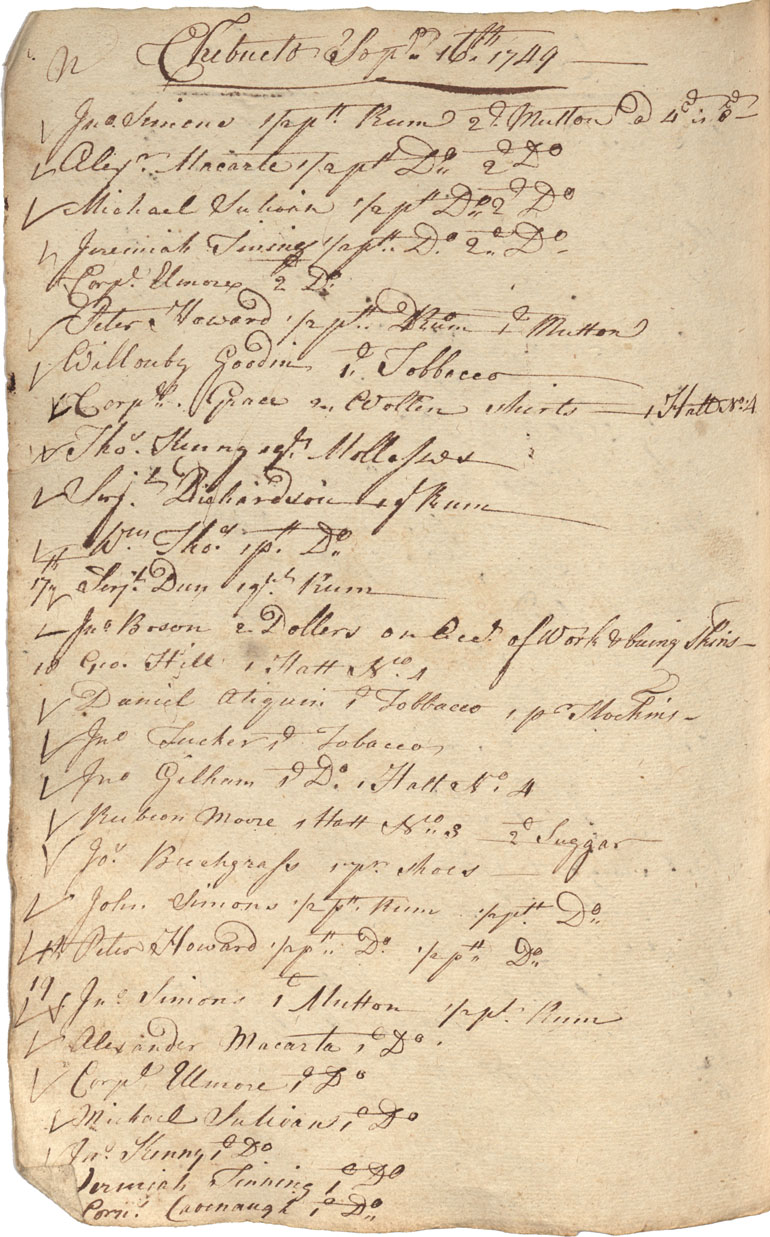 Chebucto Sepr. 16th. 1749
Jno. Simons 1/2 pt. Rum 2d. Mutton a 4d is 8d
Alexr. Macarte 1/2 pt Do. 2d Do
Michael Sulivan 1/2 pt Do. 2d Do
Jeremiah Tinning 1/2 pt. Do. 2d. Do
Corpl. Elmore 2d Do.
Peter Howard 1/2 pt. Rum 1d Mutton
Willouby Goodin 1d. Tobbacco
Corpll. Grace 2 Wollen shirts 1 Hatt No. 4
Thos. Kenny 1 qt. Mollasses
Serjt. Richardson 1 qt Rum
Wm. Thos. 1 pt. Do.
17th Serjt. Dun 1 qt. Rum
Jno Boson 2 Dollers on Acct. of Work & buing Skins
18 Geo. Hill 1 Hatt No. 4
Daniel 1d Tobbacco 1 pr Stockins
Jno Tucker 1d Tobacco
Jno Gilham 1d Do. 1 Hatt No. 4
Rubeon Moore 1 Hatt No. 3 2d Suggar
Jos. Buckgrass 1 pr. shoes
John Simons 1/2 pt. Rum 1/2 pt. Do.
Peter Howard 1/2 pt. Do. 1/2 pt Do.
19 Jno Simons 1d Mutton 1/2 pt. Rum
Alexander Macarta 1d Do.
Corpl. Ellmore 1d Do
Michael Sulivan 1d Do
Jno. Kenny 1d Do
Jeremiah Tinning 1d Do
Corns. Cavenaugh 1d Do.